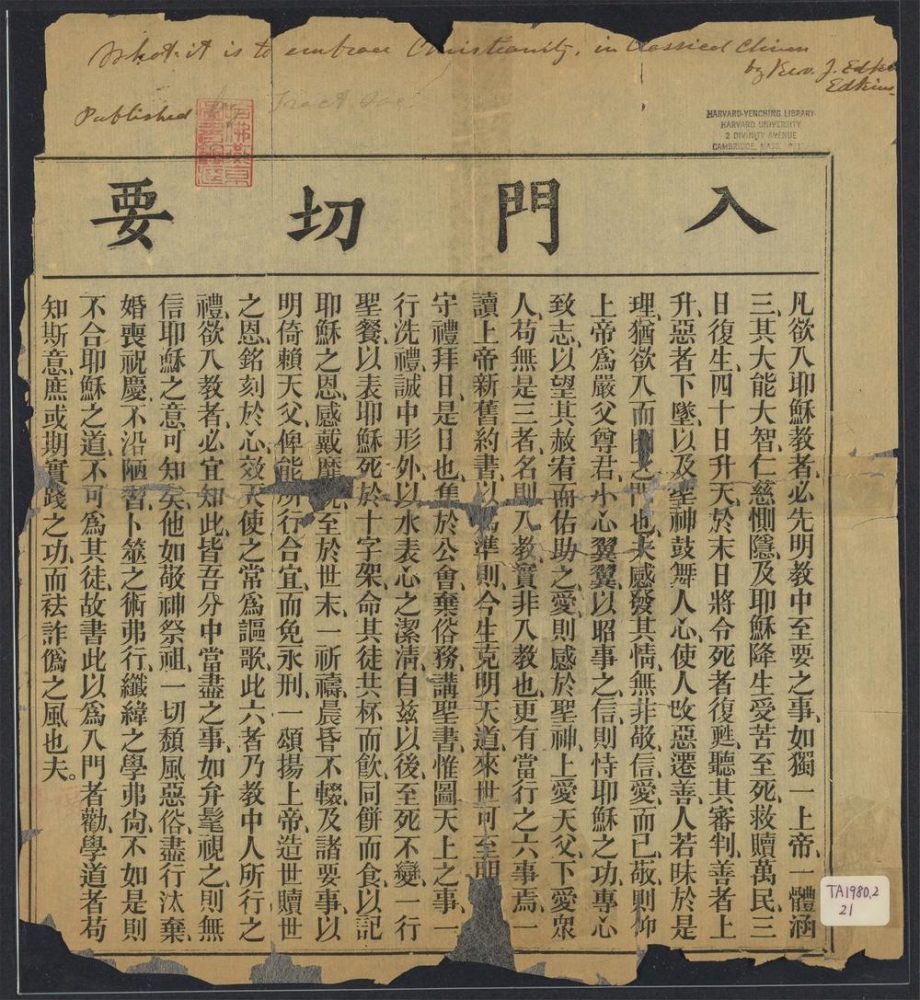 What it is to embrace Christianity, in Classical Chinese
by Rev. J. Edki
Edkins
Published Tract Soc.
哈佛燕京
圖書館
HARVARD-YENCHING LIBRARY
HARVARD UNIVERSITY
2 DIVINITY AVENUE
CAMBRIDGE, MASS.
入門切要
凡欲入耶穌教者、必先明教中至要之事、如獨一上帝、一體涵
三、其大能大智、仁慈惻隱、及耶穌降生、愛苦至死、救贖萬民、三
日復生、四十日升天、於末日將令死者復甦、聽其審判、善者上
升、惡者下墜、以及聖神鼓舞人心、使人改惡遷善、人若昧於是
理、猶欲入而閉之門也、夫感發其情、無非敬信愛而已、敬則仰
上帝爲嚴父尊君、小心翼翼、以昭事之、信則恃耶穌之功、專心
致志、以望其赦宥而佑助之、愛則感於聖神、上愛天父、下愛衆
人、苟無是三者、名則入教、實非入教也、更有當行之六事焉、一
讀上帝新舊約書、以爲準則、今生克明天道、來世可至明
守禮拜日、是日也、集於公會、棄俗務、講聖書、惟圖天上之事、一
行洗禮、誠中形外、以水表心之潔淸、自兹以後、至死不變、一行
聖餐、以表耶穌死於十字架、命其徒共杯而飮、同餅而食、以記
耶穌之恩、感戴靡旣、至於世末、一祈禱、晨昏不輟、及諸要事、以
明倚賴天父、俾能所行合宜、而免永刑、一頌揚上帝造世贖世
之恩、銘刻於心、效天使之常爲謳歌、此六者、乃教中人所行之
禮、欲入教者、必宜知此、皆吾分中當盡之事、如弁髦視之、則無
信耶穌之意可知矣、他如敬神祭祖、一切頽風惡俗、盡行汰棄、
婚喪祝慶、不沿陋習、卜筮之術弗行、纖緯之學弗尙、不如是、則
不合耶穌之道、不可爲其徒、故書此以爲入門者勸、學道者苟
知斯意、庶或期實踐之功、而袪詐僞之風也夫。
TA1980.2
21